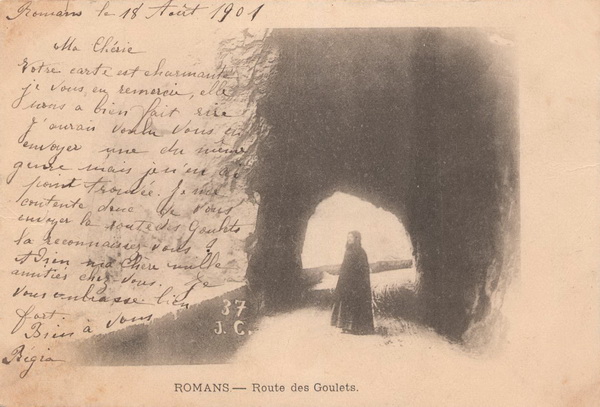 Romans le 18 Août 1901
Ma Chérie
Votre carte est charmante
je vous en remercie, elle
nous a bien fait rire
J'aurais voulu vous en
envoyer une du même
genre mais je n'en ai
point trouvée. Je me
contente donc de vous
envoyer la route des Goulets
la reconnaissez vous ?
Adieu ma chère mille
amitiés chez vous. Je
vous embrasse bien
fort.
Bien à vous
37
J. C.
ROMANS.— Route des Goulets.